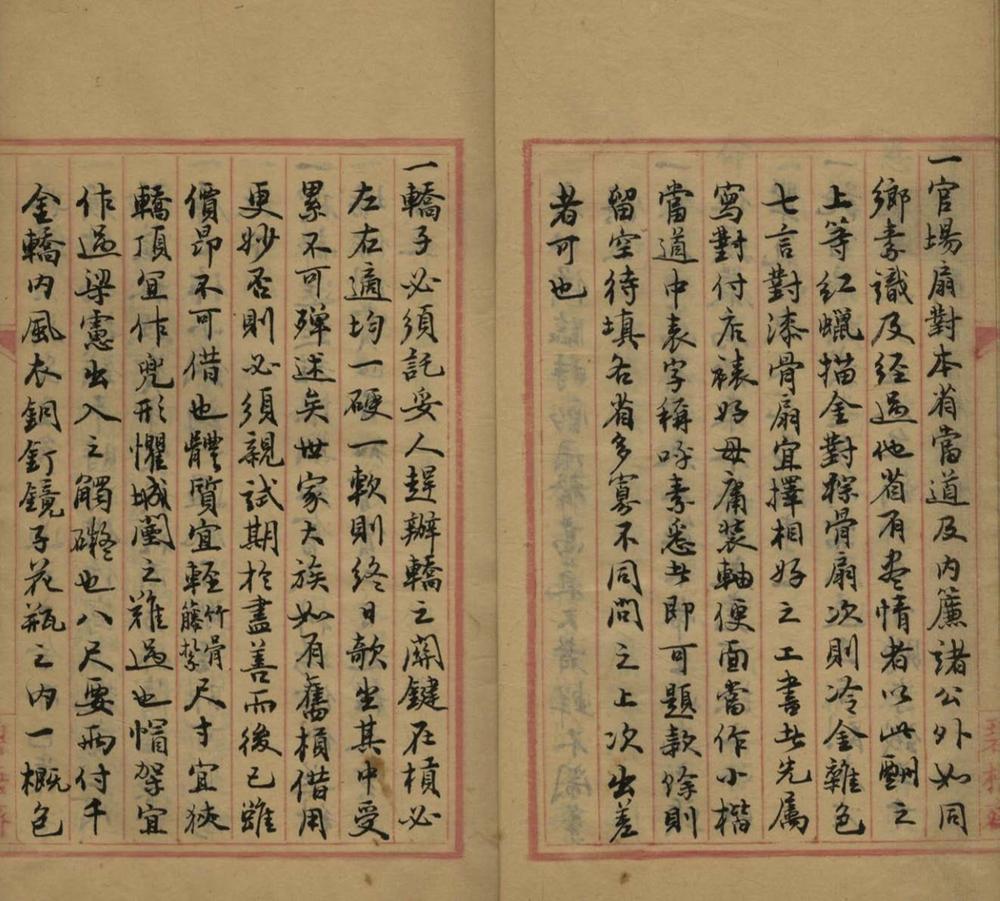 一官場扇對本省當道及内簾諸公外如同
鄉素識及經過他省有盡情者以此酬之
上等紅蠟描金對棕骨扇次則冷金雜色
七言對漆骨扇宜擇相好之工書者先屬
寫對付店裱好毋庸裝軸便面當作小楷
當道中表字稱呼素悉者即可題款餘則
留空待填各省多寡不同問之上次出差
者可也
一轎子必須託妥人趕辦轎之關鍵在槓必
左右適均一硬一軟則終日欹坐其中受
累不可殫述矣世家大族如有舊槓借用
更妙否則必須親試期於盡善而後已雖
價昂不可借也體質宜輕竹骨藤挐尺寸宜狹
轎頂宜作兜形懼城闉之難過也帽架宜
作過梁憲出入之觸礙也八尺要兩付千
金轎内風衣銅釘鏡子花瓶之内一概色